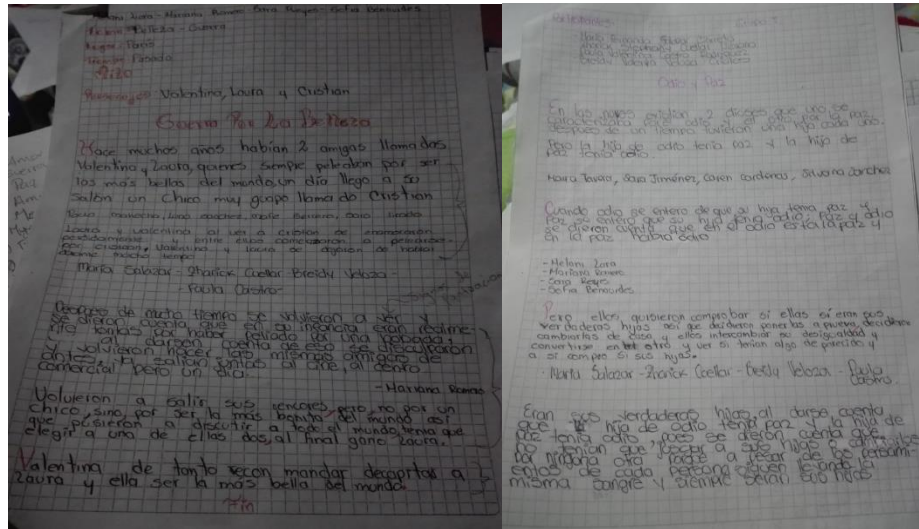 Melani Lora - Mariana Romero Sara Reyes - Sofia Benavides
Belleza - Guerra
Lugar: París
Pasado
Personajes: Valentina, Laura y Cristian
Guerra Por La Belleza
Hace muchos años habían 2 amigas llamadas
Valentina y Laura, quienes siempre peleaban por ser
las más bellas del mundo, un día llego a su
salón un chico muy guapo llamado Cristian
Laura y valentina al ver a cristian se enamoraron
y entre ellas comenzaron a pelear
por cristian, Valentina y Laura se dejaron de hablar
durante mucho tempo
María Salazar - Sharick Cuellar Breidy Veloza -
- Paula Castro -
Despues de mucho tiempo se volvieron a ver y
se dieron cuenta que en su infancia eran realme-
nte tontas por haber peleado por una bobada,
al darsen cuenta de eso se disculparon
y volvieron hacer las mismas amigas de
antes, y salian juntas al cine, al centro
comercial pero un dia.
- Mariana Romero
Volvieron a salir sus rencores pero no por un
chico, sino por ser la más bonita del mundo así
que pusieron a discutir a todo el mundo, tenia que
elegir a una de ellas dos, al final gano Laura.
Valentina de tanto recon mandar decapitar a
Laura y ella ser la mas bella del mundo.
Fin
Odio y Paz
En las nubes existian 2 dioses que uno se
caracterizaba por el odio y el otro por la paz
después de un tiempo tuvieron una hija cada uno.
Pero la hija de odio tenía paz y la hija de
paz tenía odio.
Maira Tavaro, Sara Jiménez, Caren Cardenas, Silvana Sanchez
Cuando odio se entero de que su hija tenia paz y
paz se entero que su hija tenia odio, paz y odio
se dieron cuenta que en el odio esta la paz y
en la paz habia odio
- Melani Lora
- Mariana Romero
- Sara Reyes
- Sofia Benavides
Pero ellos, quisieron comprobar si ellas si eran sus
verdaderas hijas así que decidieron ponerlas a prueba, decidieron
cambiarlas de casa y ellos intercambiar su desigualdad y
convertirse en el otro y ver si tenian algo de parecido y
a si compro si sus hijas.
- Marta Salazar - Sharick Cuellar - Breidy Veloza - Paula
Castro.
Eran sus verdaderas hijas, al darse cuenta
que la hija de odio tenia paz y la hija de
paz tenia odio, pues se dieron cuenta que
no tenian que juzgar a sus hijas o cambiarlas
por ninguna otra parte a pesar de los pensami-
entos de cada persona siguen llevando la
misma sangre y siempre serán sus hijas